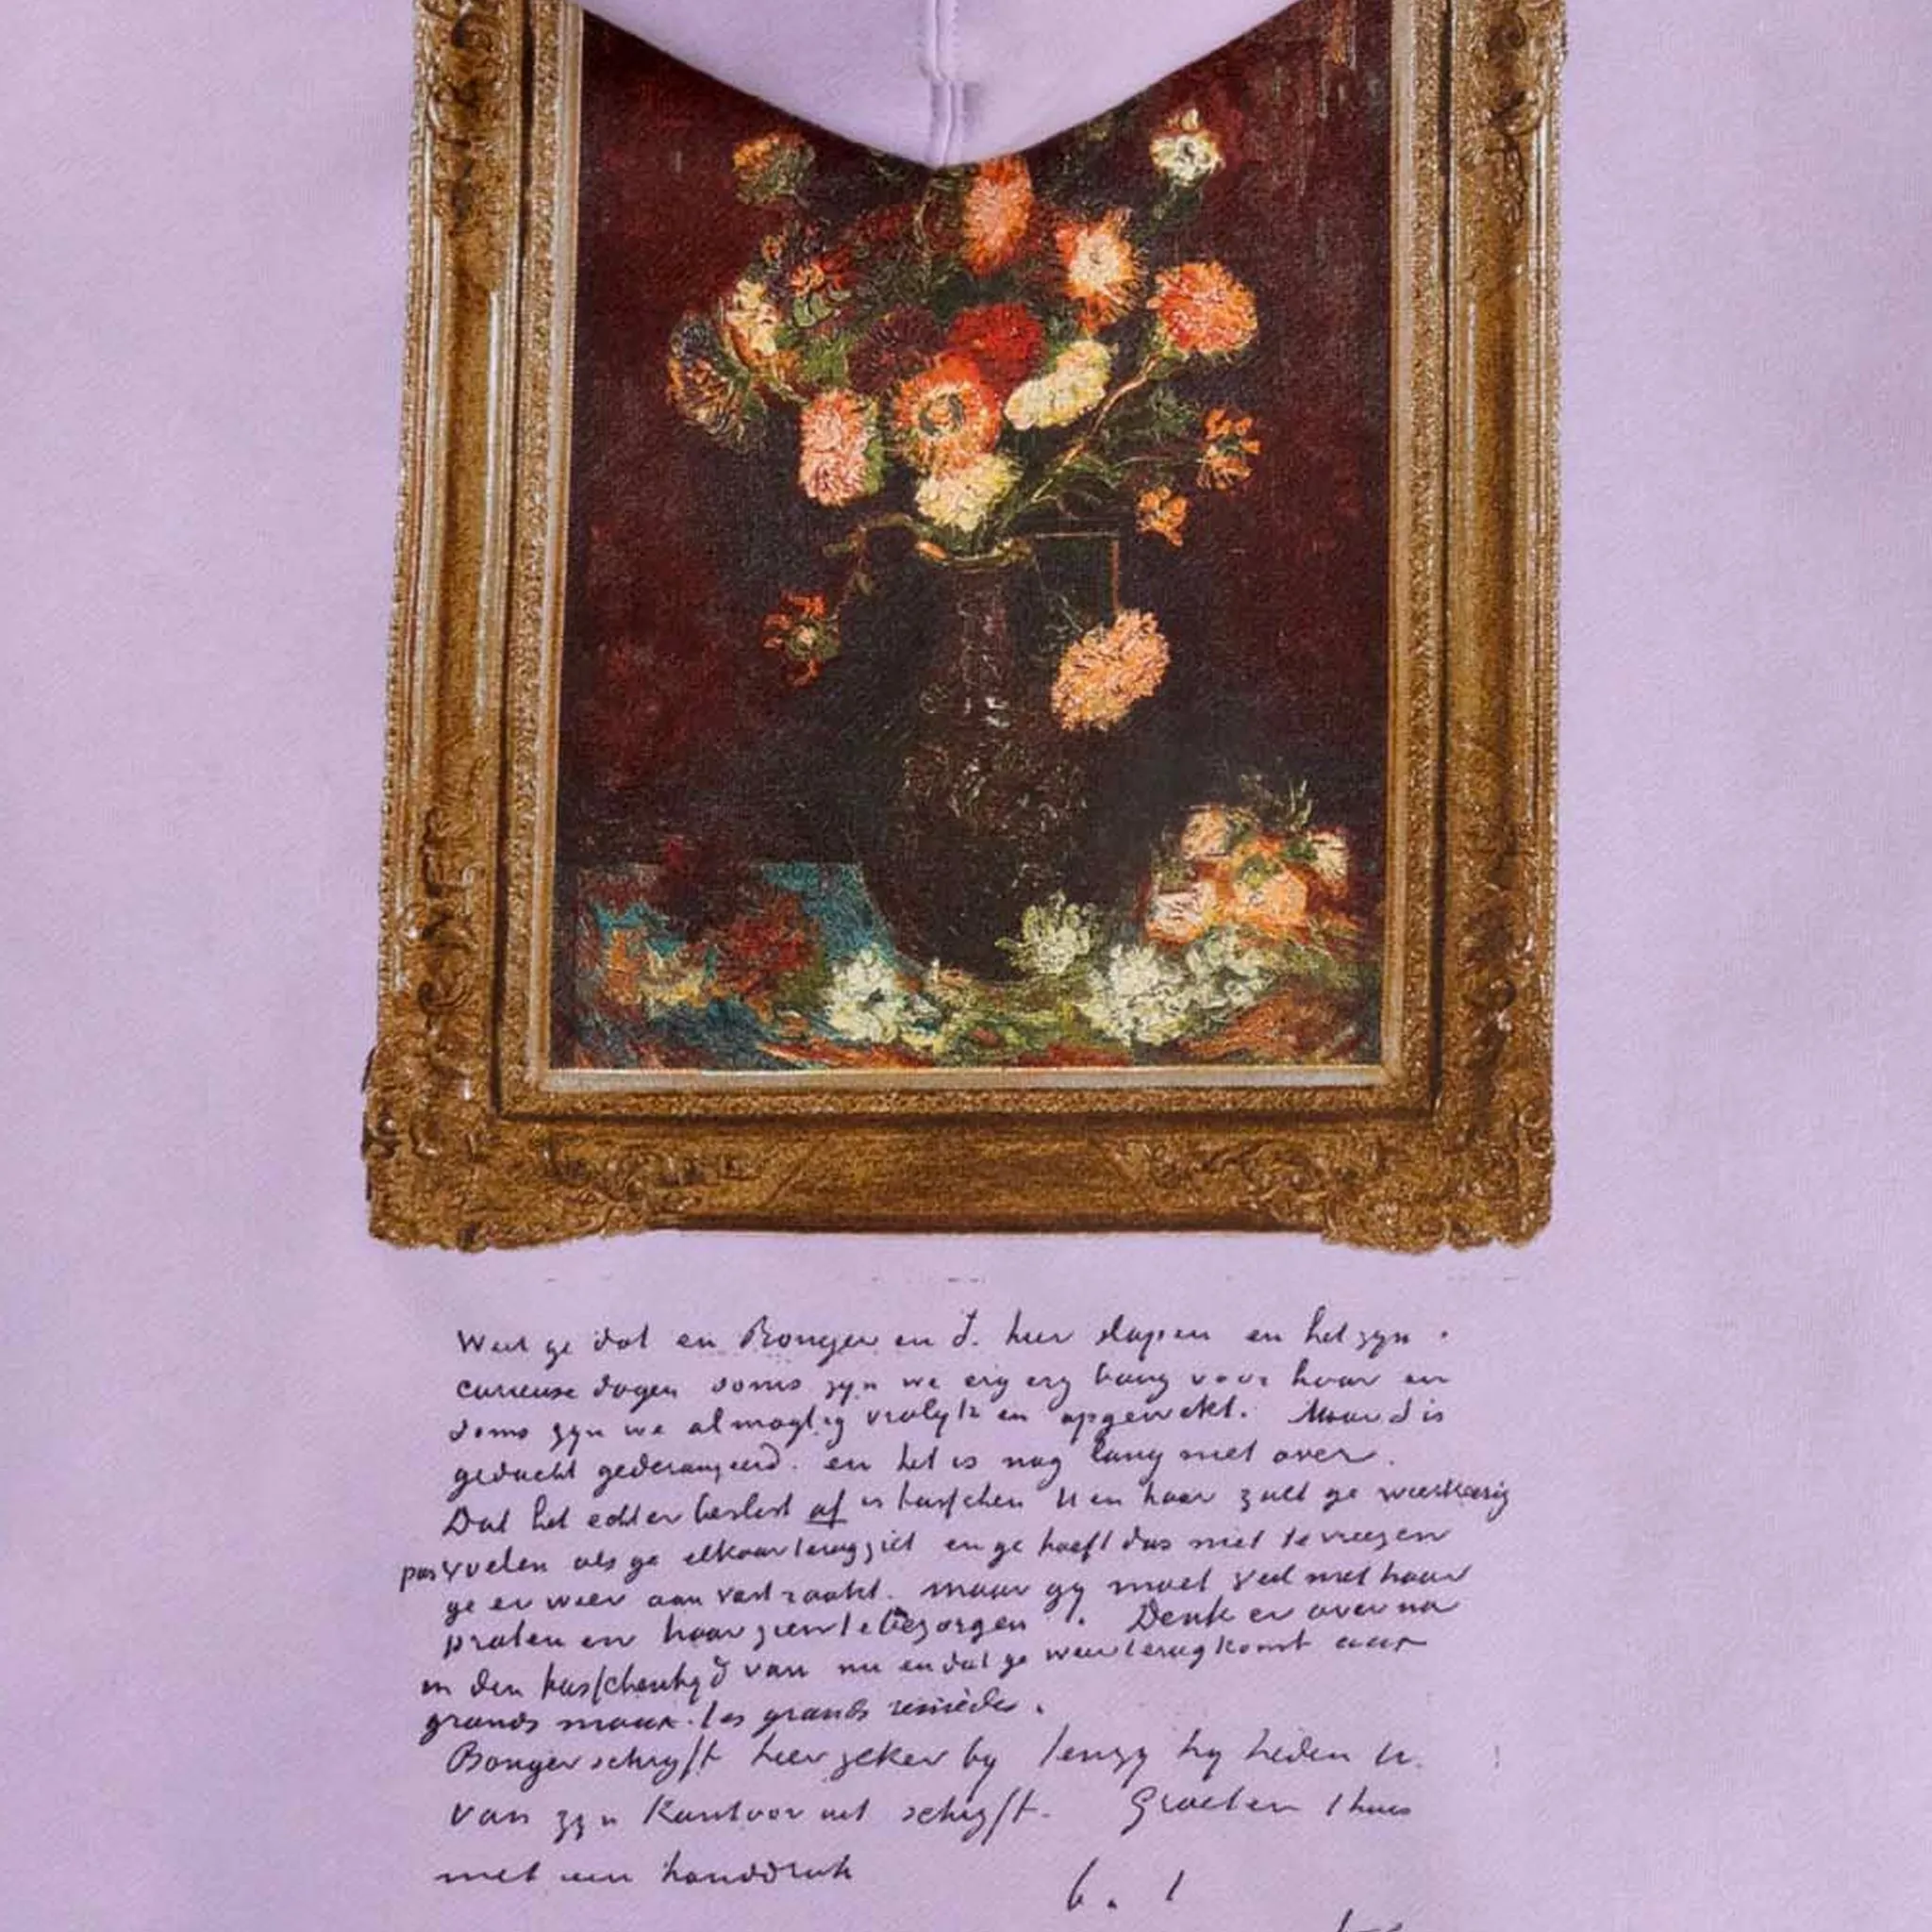 Weet ge dat en Bonger en ik hier slapen en het zyn
curieuse dagen soms zyn we erg erg bang voor haar en
soms zyn we almagtig vrolyk en opgewekt. Maar S is
geducht gederangeerd. en het is nog lang niet over.
Dat het echter beslist af is tusschen U en haar zult ge wederkeerig
voelen als ge elkaar terugziet en ge hoeft dus niet te vreezen
ge er weer aan vast raakt. maar gy moet veel met haar
praten en haar zien te bezorgen. Denk er over na
in den tusschentyd van nu en dat ge weer terug komt aux
grands maux les grands remèdes.
Bonger schryft hier zeker by tenzy hy heden U.
van zyn Kantoor uit schryft. Groeten thuis
met een handdruk